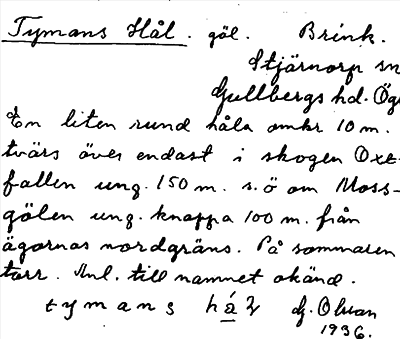 Tymans Hål. göl. Brink.
Stjärnorp sn
Gullbergs hd. Ög.
En liten rund håla omkr 10 m.
tvärs över endast i skogen Oxe-
fallen ung. 150 m. s.ö om Moss-
gölen ung. knappa 100 m. från
ägornas nordgräns. På sommaren
torr. Anl. till namnet okänd.
tymans hál G. Olsson
1936.